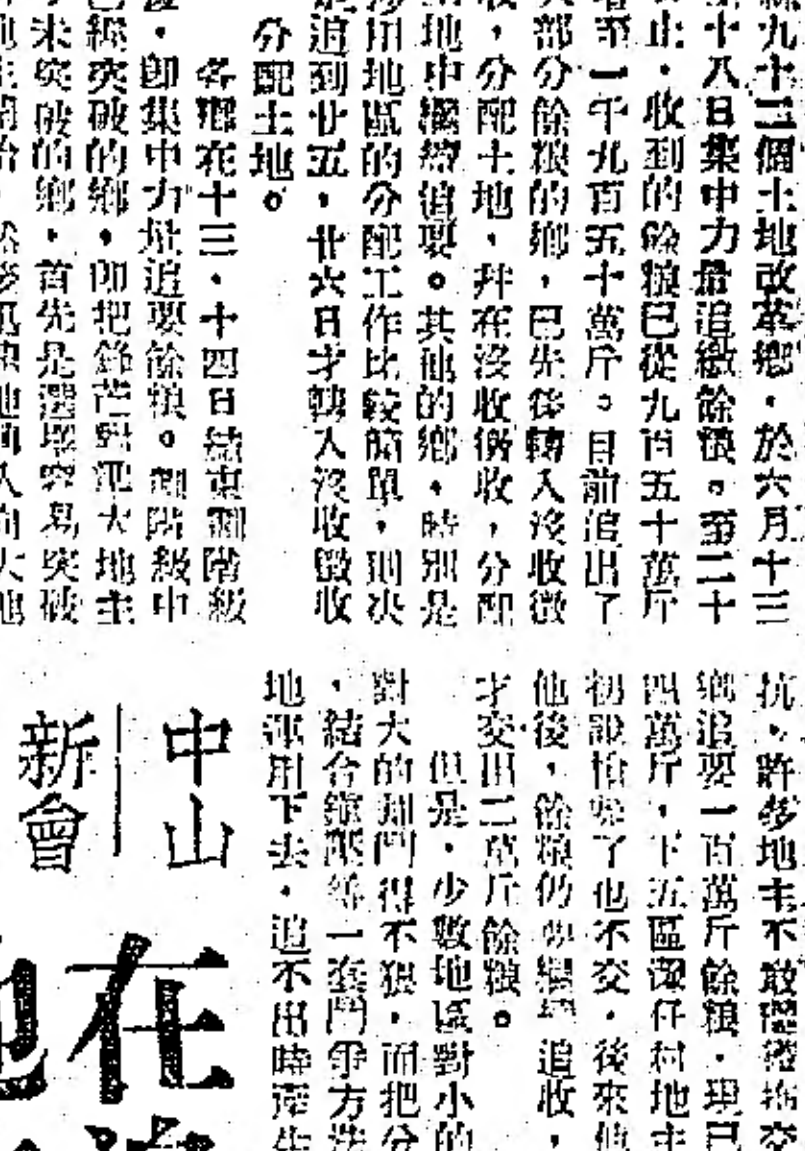 九十二個土地改革鄉，於六月十三
十八日集中力量追繳餘糧。至二十
止，收到的餘糧已從九百五十萬斤
至一千九百五十萬斤。目前追出了
部分餘糧的鄉，已先後轉入沒收徵
，分配土地，并在沒收徵收，分配
地中繼續追要。其他的鄉，特別是
用地區的分配工作比較簡單，則決
追到廿五，廿六日才轉入沒收徵收
分配土地。
各鄉在十三，十四日結束劃階級
，即集中力量追要餘糧。劃階級中
突破的鄉，即把鋒芒對準大地主
未突破的鄉，首先是選擇容易突破
抗，許多地主不敢
鄉追要一百萬斤餘糧，現已
四萬斤，下五區 仔村地主
初說槍斃了也不交，後來
他後，餘糧仍要繼續追收，
才交出二萬斤餘糧。
但是，少數地區對小的
對大的則鬥得不狠，而把分
，結合鎮壓等一套鬥爭方法
地運用下去，追不出時產生
中山
新會
在